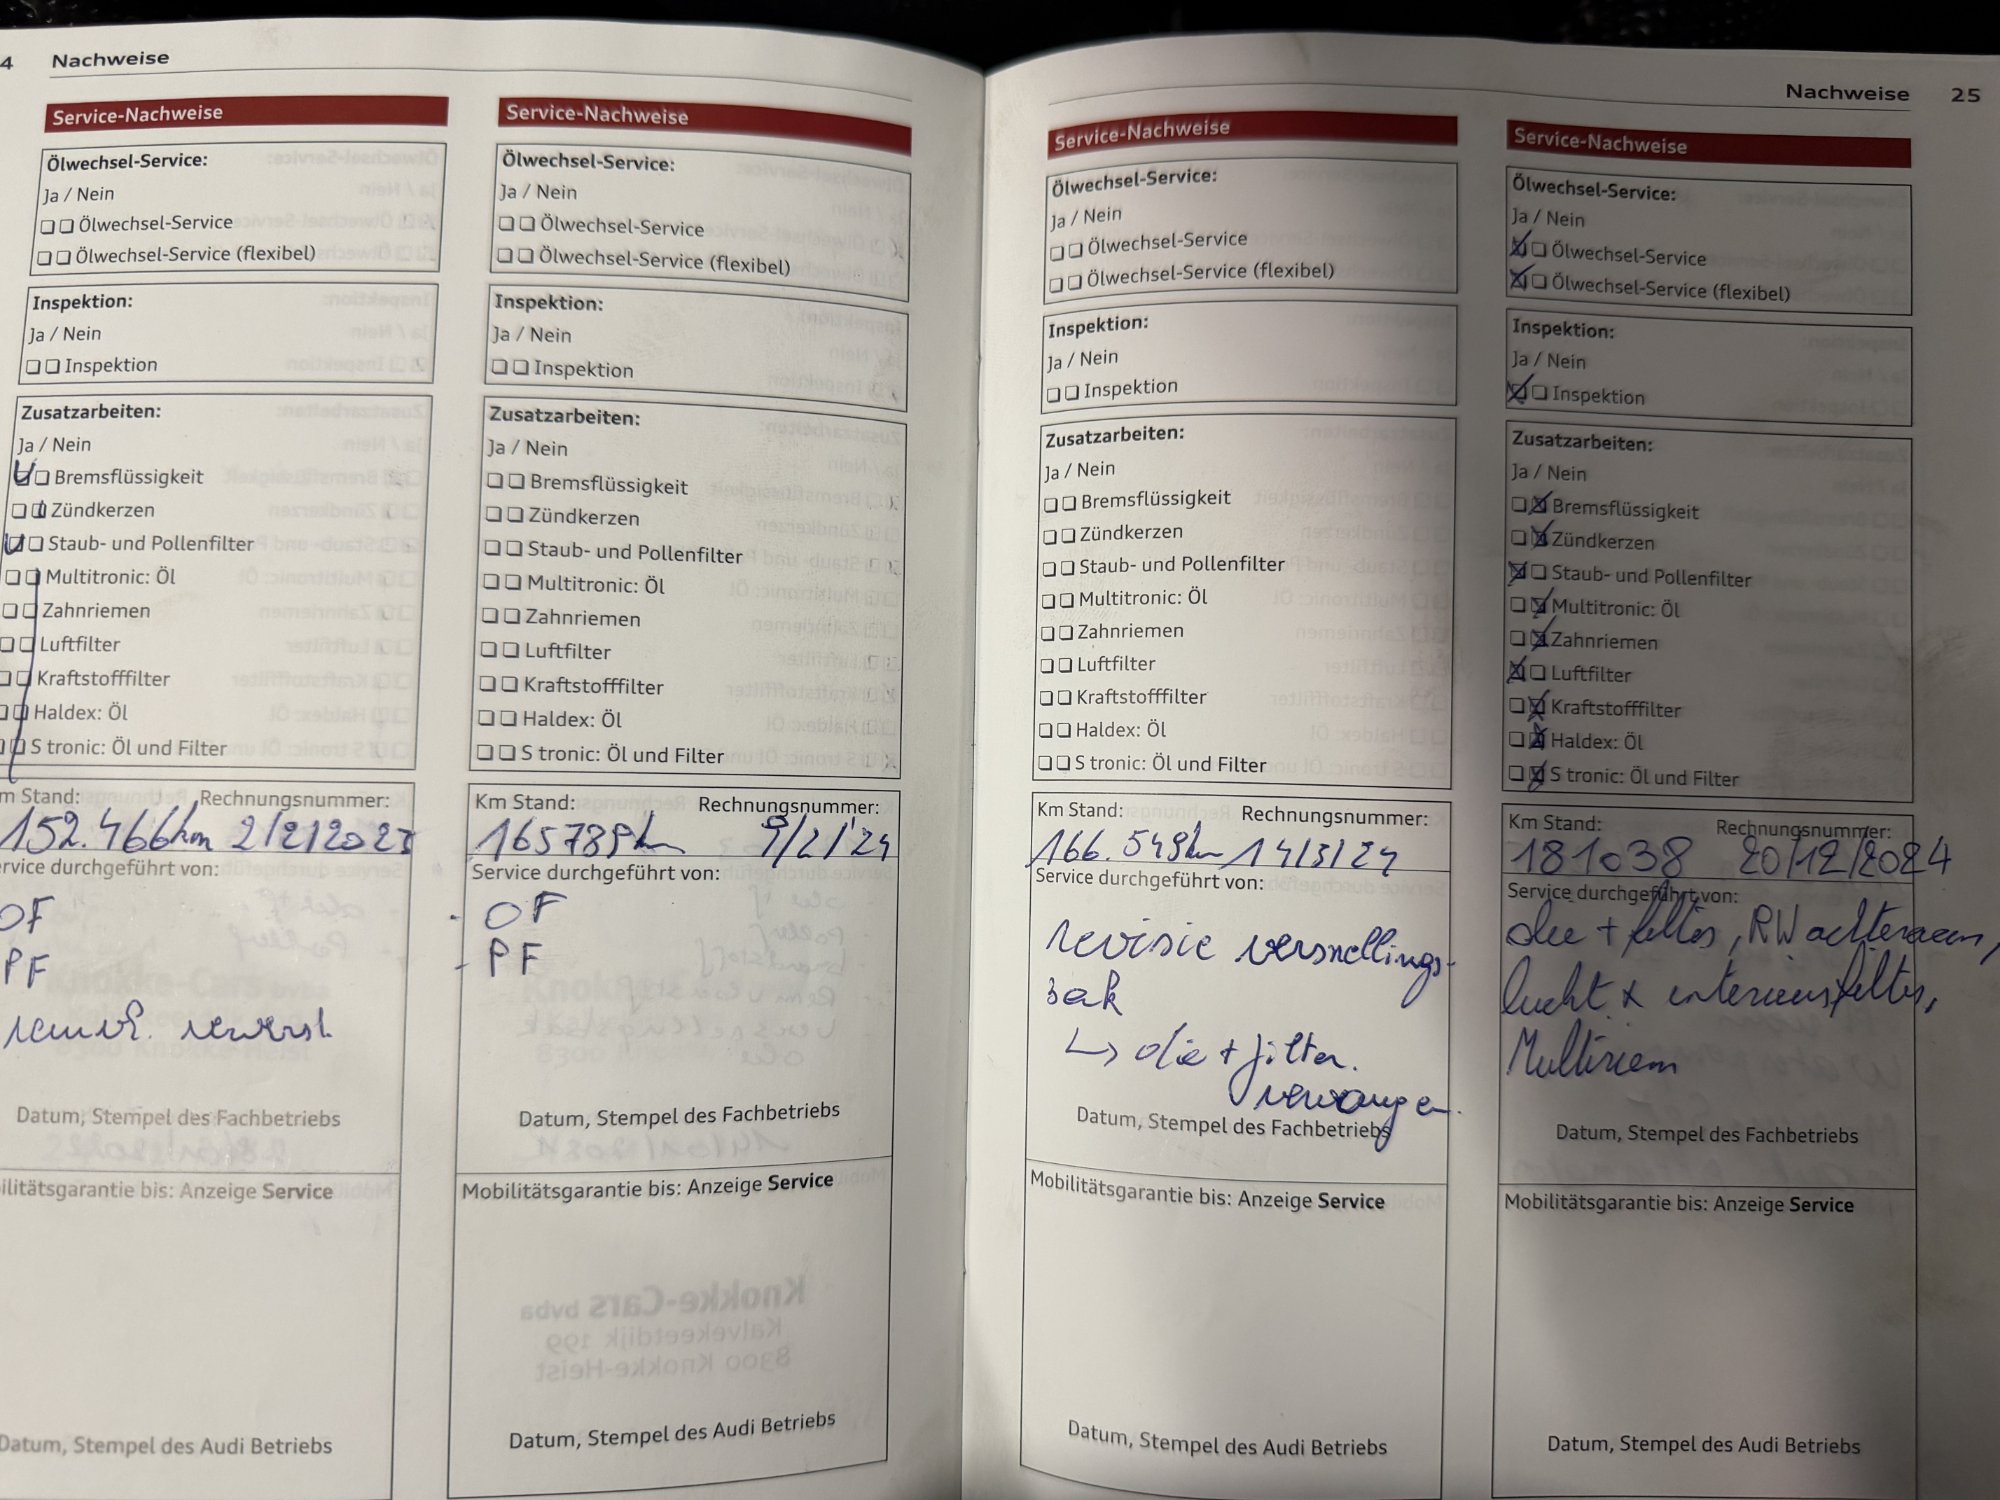 4 Nachweise
Service-Nachweise
Ölwechsel-Service:
Ja / Nein
Ölwechsel-Service
Ölwechsel-Service (flexibel)
Inspektion:
Ja / Nein
Inspektion
Zusatzarbeiten:
Ja / Nein
Bremsflüssigkeit
Zündkerzen
Staub- und Pollenfilter
Multitronic: Öl
Zahnriemen
Luftfilter
Kraftstofffilter
Haldex: Öl
S tronic: Öl und Filter
m Stand: Rechnungsnummer:
152.466km 2/2/2023
ervice durchgeführt von:
OF
PF
remvl.
Datum, Stempel des Fachbetriebs
ilitätsgarantie bis: Anzeige Service
Datum, Stempel des Audi Betriebs
Service-Nachweise
Ölwechsel-Service:
Ja / Nein
Ölwechsel-Service
Ölwechsel-Service (flexibel)
Inspektion:
Ja / Nein
Inspektion
Zusatzarbeiten:
Ja / Nein
Bremsflüssigkeit
Zündkerzen
Staub- und Pollenfilter
Multitronic: Öl
Zahnriemen
Luftfilter
Kraftstofffilter
Haldex: Öl
S tronic: Öl und Filter
Km Stand: Rechnungsnummer:
165789km 9/2/'24
Service durchgeführt von:
- OF
- PF
Datum, Stempel des Fachbetriebs
Mobilitätsgarantie bis: Anzeige Service
Datum, Stempel des Audi Betriebs
Nachweise 25
Service-Nachweise
Ölwechsel-Service:
Ja / Nein
Ölwechsel-Service
Ölwechsel-Service (flexibel)
Inspektion:
Ja / Nein
Inspektion
Zusatzarbeiten:
Ja / Nein
Bremsflüssigkeit
Zündkerzen
Staub- und Pollenfilter
Multitronic: Öl
Zahnriemen
Luftfilter
Kraftstofffilter
Haldex: Öl
S tronic: Öl und Filter
Km Stand: Rechnungsnummer:
166.549km 14/3/24
Service durchgeführt von:
revisie versnellings-
bak
↳ olie + filter.
vervangen.
Datum, Stempel des Fachbetriebs
Mobilitätsgarantie bis: Anzeige Service
Datum, Stempel des Audi Betriebs
Service-Nachweise
Ölwechsel-Service:
Ja / Nein
Ölwechsel-Service
Ölwechsel-Service (flexibel)
Inspektion:
Ja / Nein
Inspektion
Zusatzarbeiten:
Ja / Nein
Bremsflüssigkeit
Zündkerzen
Staub- und Pollenfilter
Multitronic: Öl
Zahnriemen
Luftfilter
Kraftstofffilter
Haldex: Öl
S tronic: Öl und Filter
Km Stand: Rechnungsnummer:
181038 20/12/2024
Service durchgeführt von:
olie + filter, RW achteraan,
lucht & interieurfilter,
Multiriem
Datum, Stempel des Fachbetriebs
Mobilitätsgarantie bis: Anzeige Service
Datum, Stempel des Audi Betriebs